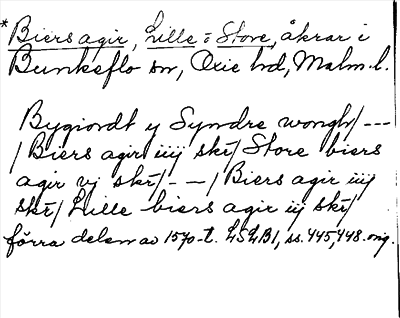 *Biers agir, Lille = Store, åkrar i
Bunkeflo sn, Oxie hd, Malm.l.
Bygiordt y Syndre wongh/ ---
/ Biers agir iiij skr/ Store biers
agir vj skr/ - - / Biers agir iiij
skr/ Lille biers agir iij skr/
förra delen av 1570-t. LSLB1, ss. 445, 448. orig.